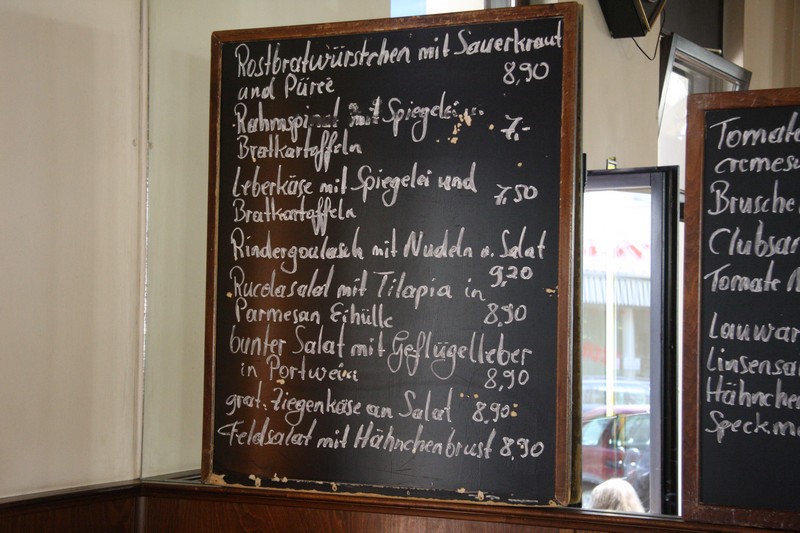 Rostbratwürstchen mit Sauerkraut
und Püreé 8,90
Rahmspinat mit Spiegelei
Bratkartoffeln 7,-
Leberkäse mit Spiegelei und
Bratkartoffeln 7,50
Rindergoulasch mit Nudeln o. Salat
9,20
Rucolasalat mit Tilapia in
Parmesan Eihülle 8,90
bunter Salat mit Geflügelleber
in Portwein 8,90
grat. Ziegenkäse an Salat 8,90
Feldsalat mit Hähnchenbrust 8,90
Tomate
cremesu
Brusche
Clubsan
Tomate M
Lauwar
Linsensa
Hähnche
Speckm